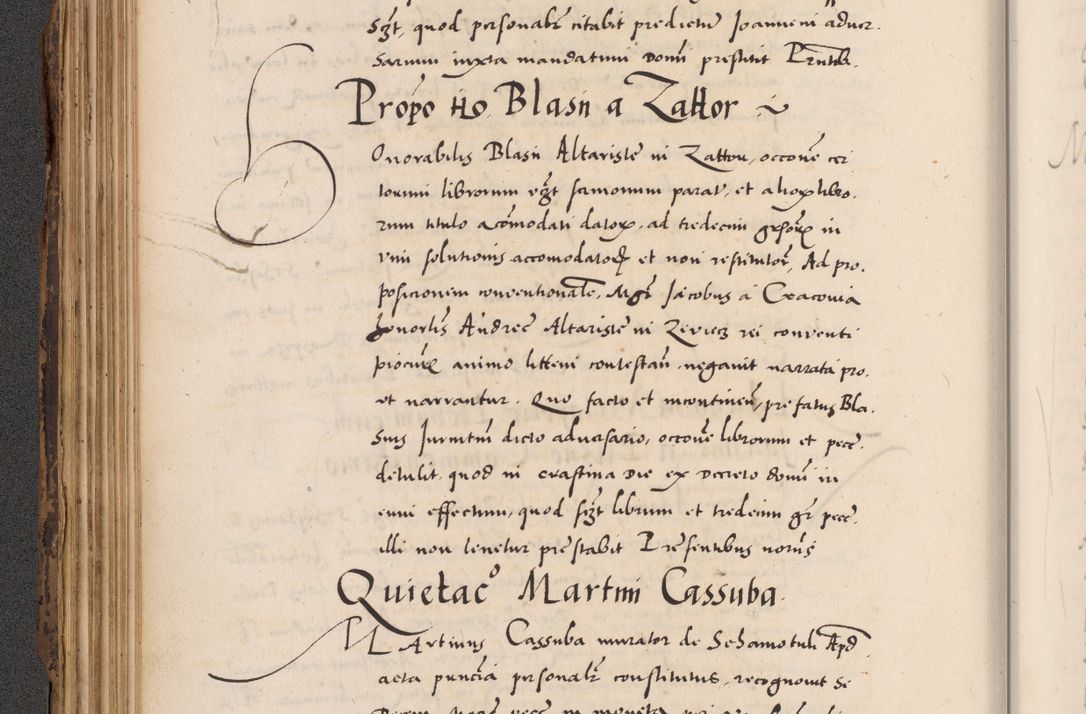 Szt, quod personalr citabit predictum Joannem in adver.
sarium iuxta mandatum domi prestitit Prntib.
Propo tio Blasii a Zattor
Onorabilis Blasii Altariste in Zattor, occone cer
torum librorum vzt sermonum parat, et aliox libro.
rum titulo acomodati datox, ad tredecim grsox in
vim solutionis accomodatox et non restitutox, Ad pro.
posicionem conventionale, Mgr Jacobus a Cracovia
honorlis Andree Altariste in rei conventi
procur animo littem contestan negavit narrata pro.
ut narrantur. Quo facto et incontinen, prefatus Bla.
sius Jurntm dicto adversario, occone librorum et pecc.
detulit, quod in crastina die ex decreto domi in
eum effectum, quod szt librum et tredecim gr pecc.
illi non tenetur prestabit Presentibus norus
Quietaco Martini Cassuba.
Martinus Cassuba murator de Schamotuli Apd
acta puncia personalr constitutus, recognovit se